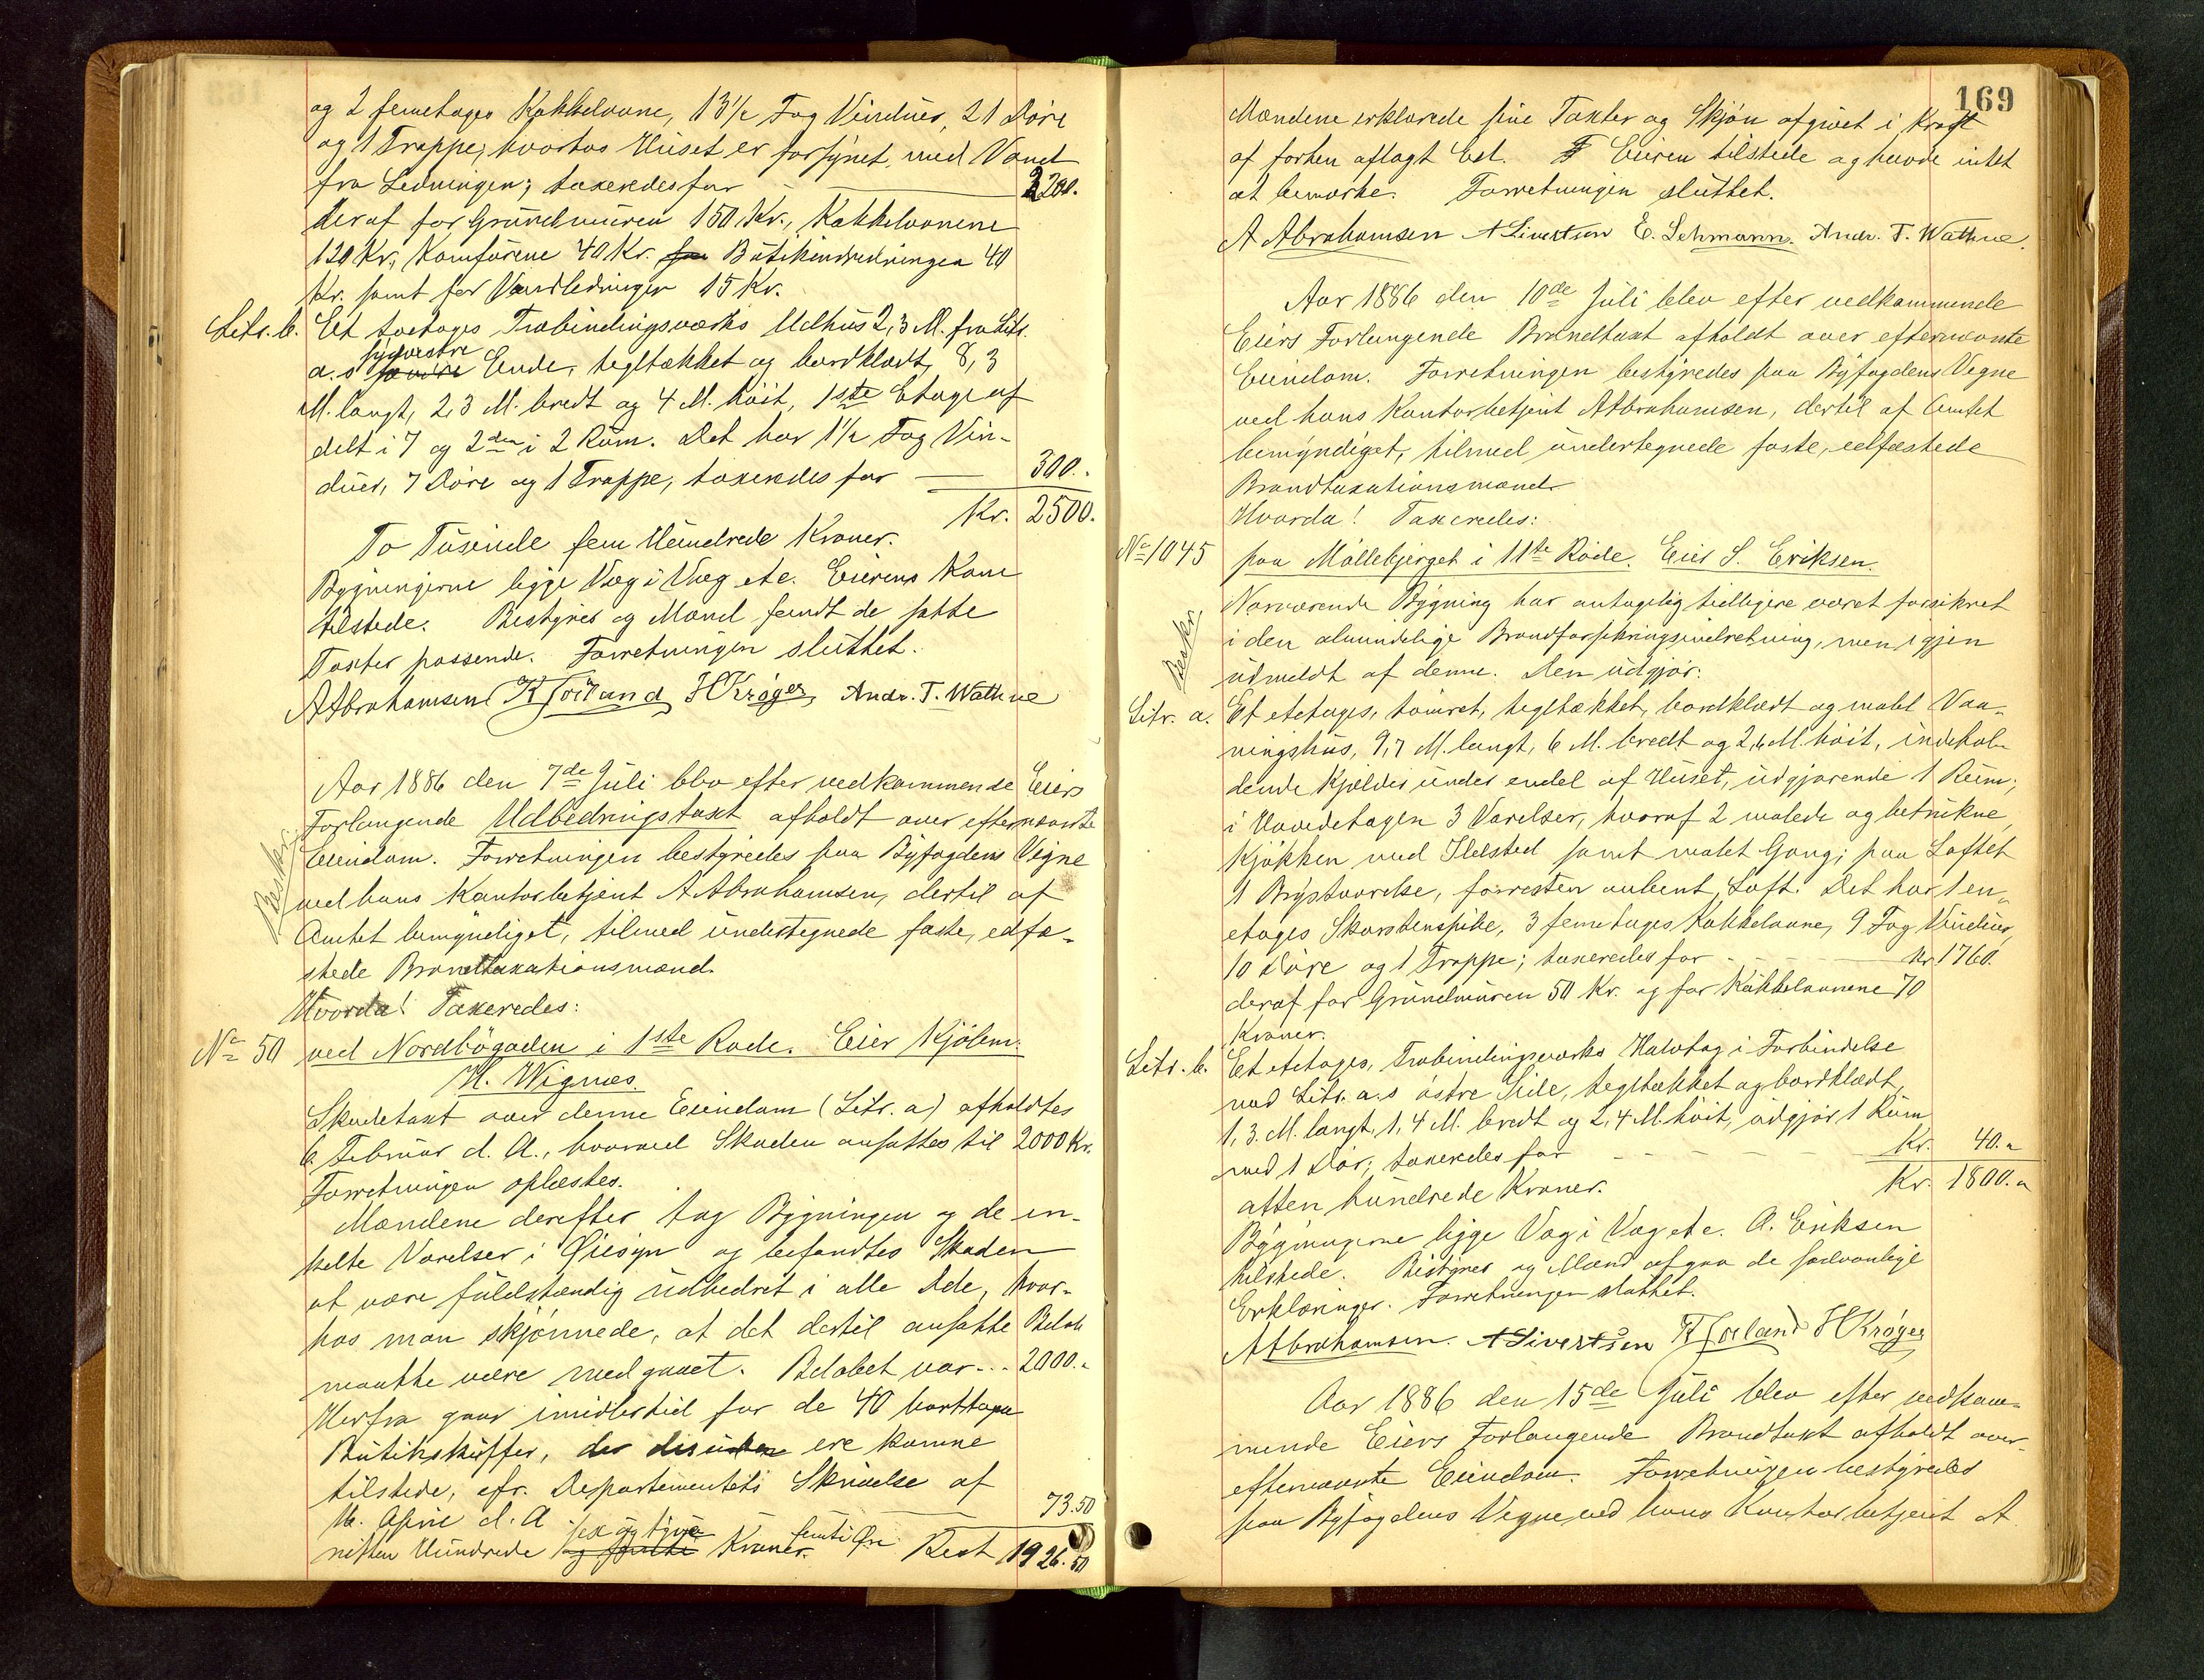 og 2 femetages Kakkelovne, 13½ Fag Vinduer, 21 Döre
og 1 Trappe, hvorhos Huset er forsynet med Vand
fra Ledningen; taxeredes for 2200.
deraf for Grundmuren 150 Kr., Kakkelovnene
120 Kr., Komfurene 40 Kr. for Butikindredningen 40
Kr. samt for Vandledningen 15 Kr.
Litr. b. Et toetages Træbindingsværks Udhus 2,3 M. fra Litr.
sydvestre
a.s söndre Ende, tegltækket og bordklædt, 8,3
M. langt, 2,3 M. bredt og 4 M. höit, 1ste Etage af
delt i 7 og 2den i 2 Rum. Det har 1½ Fag Vin-
duer, 7 Döre og 1 Trappe, taxeredes for 300.
Kr. 2500.
To Tusinde fem Hundrede Kroner.
Bygningerne ligge Væg i Væg etc. Eierens Kone
tilstede. Bestyrer og Mænd fandt de satte
Taxter passende. Forretningen sluttet.
A Abrahamsen K Joiland H Krøger Andr. T. Wathne
Aar 1886 den 7de Juli blev efter vedkommende Eiers
Forlangende Udbedringstaxt afholdt over efternævnte
Beskr.
Eiendom. Forretningen bestyredes paa Byfogdens Vegne
ved hans Kontorbetjent A Abrahamsen, dertil af
Amtet bemyndiget, tilmed undertegnede faste, edfæ-
stede Brandtaxationsmænd.
Hvorda! Taxeredes:
No 50 ved Nordbögaden i 1ste Rode. Eier Kjöbm.
H. Wignæs.
Skadetaxt over denne Eiendom (Litr. a) afholdtes
6 Februar d. A., hvorved Skaden ansattes til 2000 Kr.
Forretningen oplæstes.
Mændene derefter tog Bygningen og de en-
kelte Værelser i Øiesyn og befandtes Skaden
at være fuldstændig udbedret i alle Dele, hvor-
hos man skjönnede, at det dertil ansatte Belöb
maatte være medgaaet. Belöbet var 2000.
Herfra gaar imidlertid for de 40 borttagne
Butikskuffer, der desuden ere komne
tilstede, cfr. Departementets Skrivelse af
16. April d. A 73.50
sex og tyve femti Øre
nitten Hundrede Kroner. Rest 1926.50
169
Mændene erklærede sine Taxter og Skjön afgivet i Kraft
af forhen aflagt Ed. Eieren tilstede og havde intet
at bemærke. Forretningen sluttet.
A Abrahamsen A Sivertsen E. Lehmann. Andr. T. Wathne.
Aar 1886 den 10de Juli blev efter vedkommende
Eiers Forlangende Brandtaxt afholdt over efternævnte
Eiendom. Forretningen bestyredes paa Byfogdens Vegne
ved hans Kontorbetjent A Abrahamsen, dertil af Amtet
bemyndiget, tilmed undertegnede faste, edfæstede
Brandtaxationsmænd.
Hvorda! Taxeredes:
No 1045 paa Möllebjerget i 11te Rode. Eier S. Eriksen.
Beskr.
Nærværende Bygning har antagelig tidligere været forsikret
i den almindelige Brandforsikringsindretning, men igjen
udmeldt af denne. Den udgjör:
Litr. a. Et etetages, tömret, tegltækket, bordklædt og malet Vaa-
ningshus, 9,7 M. langt, 6 M. bredt og 2,6 M. höit, indehol-
dende Kjelder under endel af Huset, udgjörende 1 Rum;
i Hovedetagen 3 Værelser, hvoraf 2 malede og betrukne,
Kjökken med Ildsted samt malet Gang; paa Loftet
1 Brystværelse, forresten aabent Loft. Det har 1 en-
etages Skorstenspibe, 3 femetages Kakkelovne, 9 Fag Vinduer,
10 Döre og 1 Trappe; taxeredes for Kr. 1760.
deraf for Grundmuren 50 Kr. og for Kakkelovnene 70
Kroner.
Litr. b. Et etetages, Træbindingsværks Halvtag i Forbindelse
med Litr. a.s östre Side, tegltækket og bordklædt,
1,3. M. langt, 1,4 M. bredt og 2,4 M. höit, udgjör 1 Rum
med 1 Dör; taxeredes for Kr. 40.
Kr. 1800.
atten hundrede Kroner.
Bygningerne ligge Væg i Væg etc. A. Eriksen
tilstede. Bestyrer og Mænd afgav de sædvanlige
Erklæringer. Forretningen sluttet.
A Abrahamsen. A Sivertsen K Joiland H Krøger
Aar 1886 den 15de Juli blev efter vedkom-
mende Eiers Forlangende Brandtaxt afholdt over
efternævnte Eiendom. Forretningen bestyredes
paa Byfogdens Vegne ved hans Kontorbetjent A